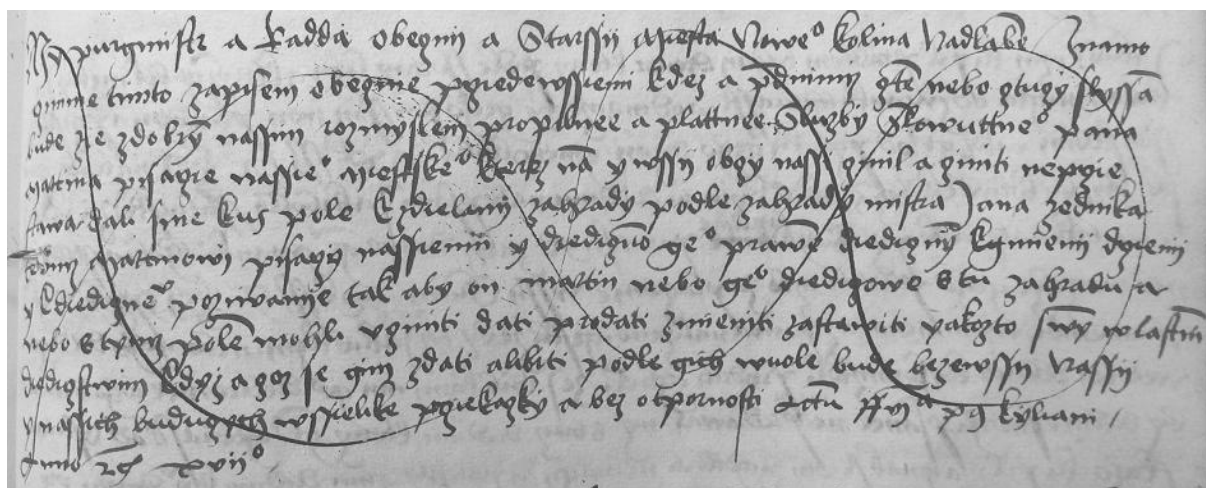 My purgmistr a Radda obeczni a Starssii Miesta Nowe° Kolina Nadlabē Znamo
czinime tiimto zapisem obeczne przedewssiemi kdez a pr̄dnimi cztē nebo cztuczy slyssā
bude ze z dobrȳ nassim rozmyslem propilnee a plattnee Sluzby Slowuttne° pana
Martina pisarze nassie° Miestske° kterez nā y wssij obczy nassi czinil a cziniti neprzie
stawa dali sme kus pole k zdielanij zahrady podle zahrady mistra Jana zednika
Martinowi pisarzy nassiemu y diediczuo ge° prawē diediczny k gmienij drzenij
y k diediczne° pozywanije tak aby on martin nebo ge° diediczowe s tu zahradu a
nebo s tym polē mohli vcziniti dati prodati zmieniti zastawiti yakozto swȳ wlastnim
diediczstwim kdyz a goz se gim zdati a libiti podle gich wuole bude beze wssij Nassij
y nassich buduczych wssielike przekazky a bez otpornosti Actū ff vi^a p9 kyliani
Anno rc̄ xvii°